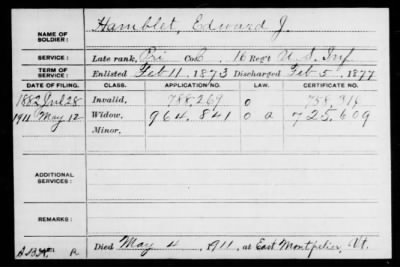 NAME OF SOLDIER: Hamblet, Edward J.
SERVICE: Late rank, Pri Co. 16 Reg't U.S. Inf
TERM OF SERVICE: Enlisted Feb 11, 1873 Discharged Feb 5, 1877
DATE OF FILING. CLASS. APPLICATION NO. LAW. CERTIFICATE NO.
1882 Jul 28 Invalid, 788,269 0
1911 May 12 Widow, 964.841 0 a 725,609
Minor,
ADDITIONAL SERVICES:
REMARKS:
Died May 4, 1911, at East Montpelier, Vt.
R